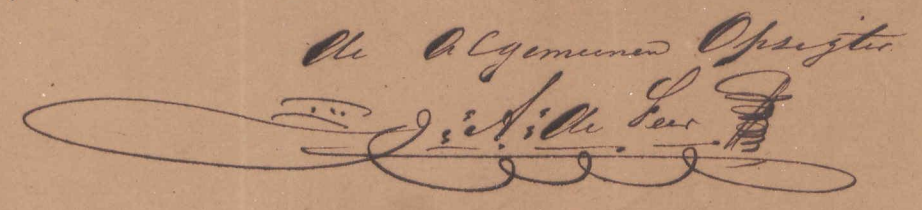 de Algemeenen Opsigter
A: de Leer